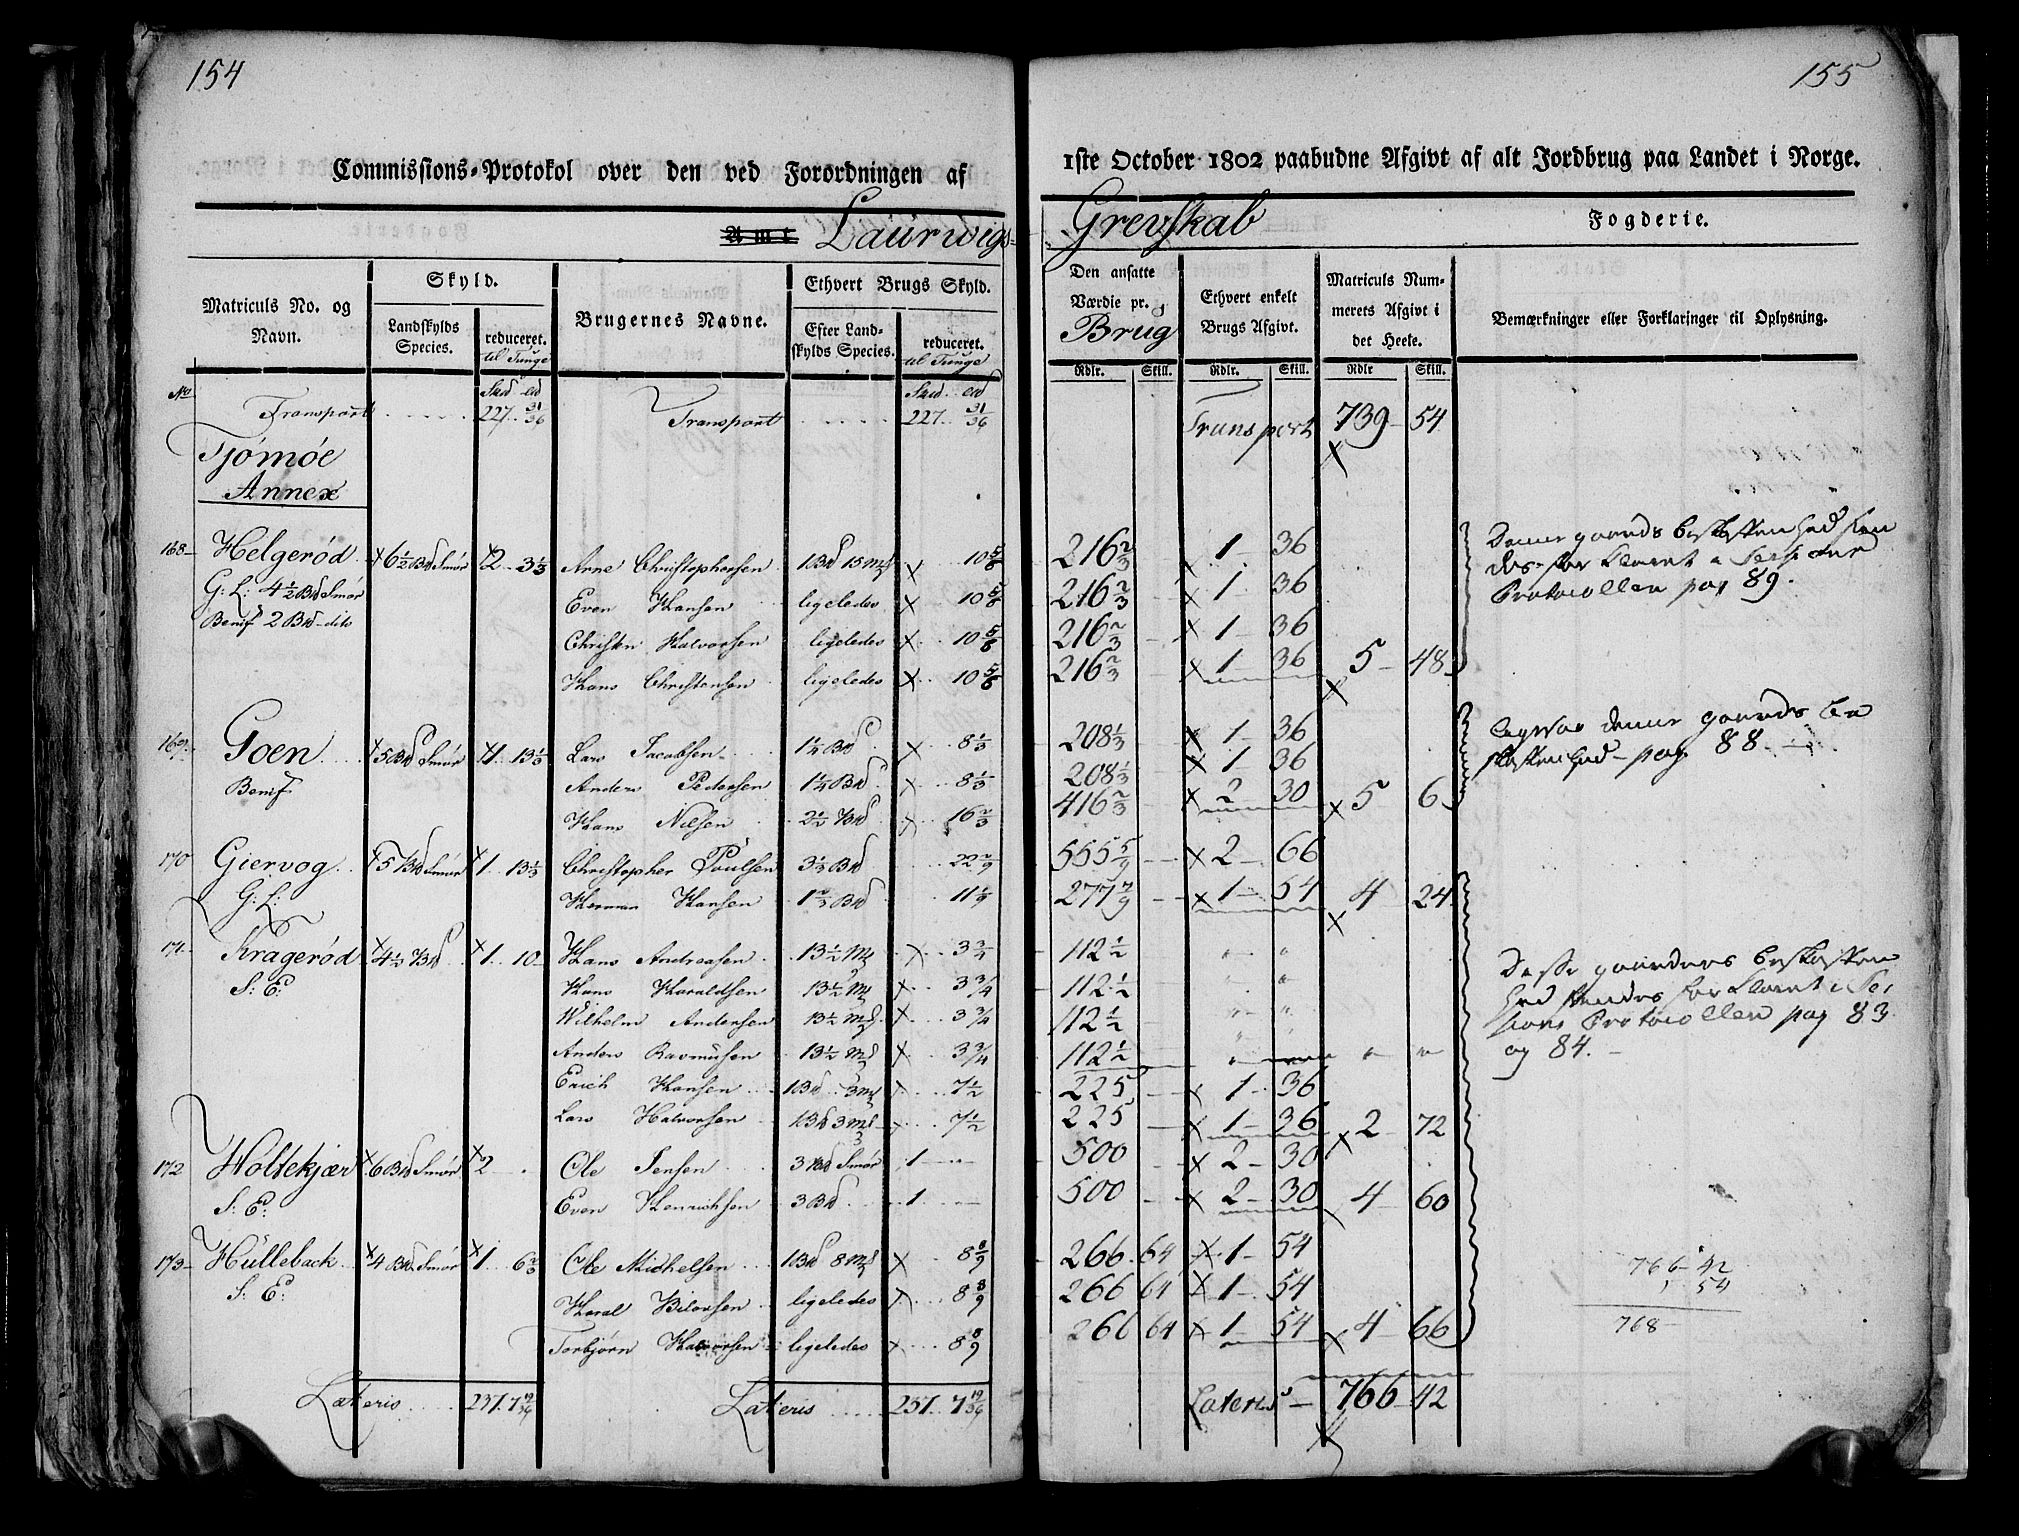 154
Commissions-Protokol over den ved Forordningen af
Amt Laurwigs
Matriculs No. og Navn.
Skyld.
Landskylds Species.
reduceret. til Tunge
Brugernes Navne.
Ethvert Brugs Skyld.
Efter Landskylds Species.
reduceret. til Tunge
No
Transport 227 31/36 Transport 227 31/36
Tjømøe
Annex
168 Helgerød 6½ Bd Smør 2 - 3⅓ Arne Christophersen 1 Bd 15 Mk 10⅝
G: L: 4½ Bd Smør Even Hansen ligeledes 10⅝
Benif 2 Bd dito Christen Halvorsen ligeledes 10⅝
Hans Christensen ligeledes 10⅝
169 Goen 5 Bd Smør 1 13⅓ Lars Jacobsen 1¼ Bd 8⅓
Benif Anders Pedersen 1¼ Bd 8⅓
Hans Nilsen 2½ Bd 16⅔
170 Giervog 5 Bd Smør 1 13⅓ Christopher Poulsen 3⅓ Bd 22 2/9
G: L: Herman Hansen 1⅔ Bd 11 1/9
171 Kragerød 4½ Bd 1 10 Hans Andreasen 13½ Mk 3¾
S: E: Hans Haraldsen 13½ Mk 3¾
Wilhelm Andersen 13½ Mk 3¾
Anders Rasmusen 13½ Mk 3¾
Erich Hansen 1 Bd 3 Mk 7½
Lars Halvorsen 1 Bd 3 Mk 7½
172 Holtekjær 6 Bd Smør 2 Ole Jensen 3 Bd Smør 1
S: E: Even Henrichsen 3 Bd 1
173 Hulleback 4 Bd Smør 1 6⅔ Ole Michelsen 1 Bd 8 Mk 8 8/9
S: E: ligeledes 8 8/9
Torbjørn Halvorsen ligeledes 8 8/9
Lateris 237 7 19/36 Lateris 237 7 19/36
155
1ste October 1802 paabudne Afgivt af alt Jordbrug paa Landet i Norge.
Grevskab Fogderie.
Den ansatte Værdie pr. Brug
Ethvert enkelt Brugs Afgivt.
Matriculs Nummerets Afgivt i det Heele.
Bemærkninger eller Forklaringer til Oplysning.
Rdlr. Skill. Rdlr. Skill. Rdlr Skill.
Transport 739 - 54
216⅔ 1 - 36 Denne gaards beskaffenhed fin
216⅔ 1 - 36 des forklaret i Sessions
216⅔ 1 - 36 Protocollen pag 89.
216⅔ 1 - 36 5 - 48
208⅓ 1 - 36 denne gaards be
208⅓ 1 - 36 skaffenhed - pag 88.
416⅔ 2 - 30 5 6
555 5/9 2 - 66
277 7/9 1 - 54 4 24
112½ " "
112½ " "
112½ " "
112½ " " " "
225 1 - 36
225 1 - 36 2 72
Disse gaarders beskaffen
hed findes forklaret i Ses
sions Protocollen pag 83
og 84.
500 2 - 30
500 2 - 30 4 60
266 64 1 - 54
266 64 1 - 54
266 64 1 - 54 4 66
766 - 42
1 54
768
Lateris 766 - 42